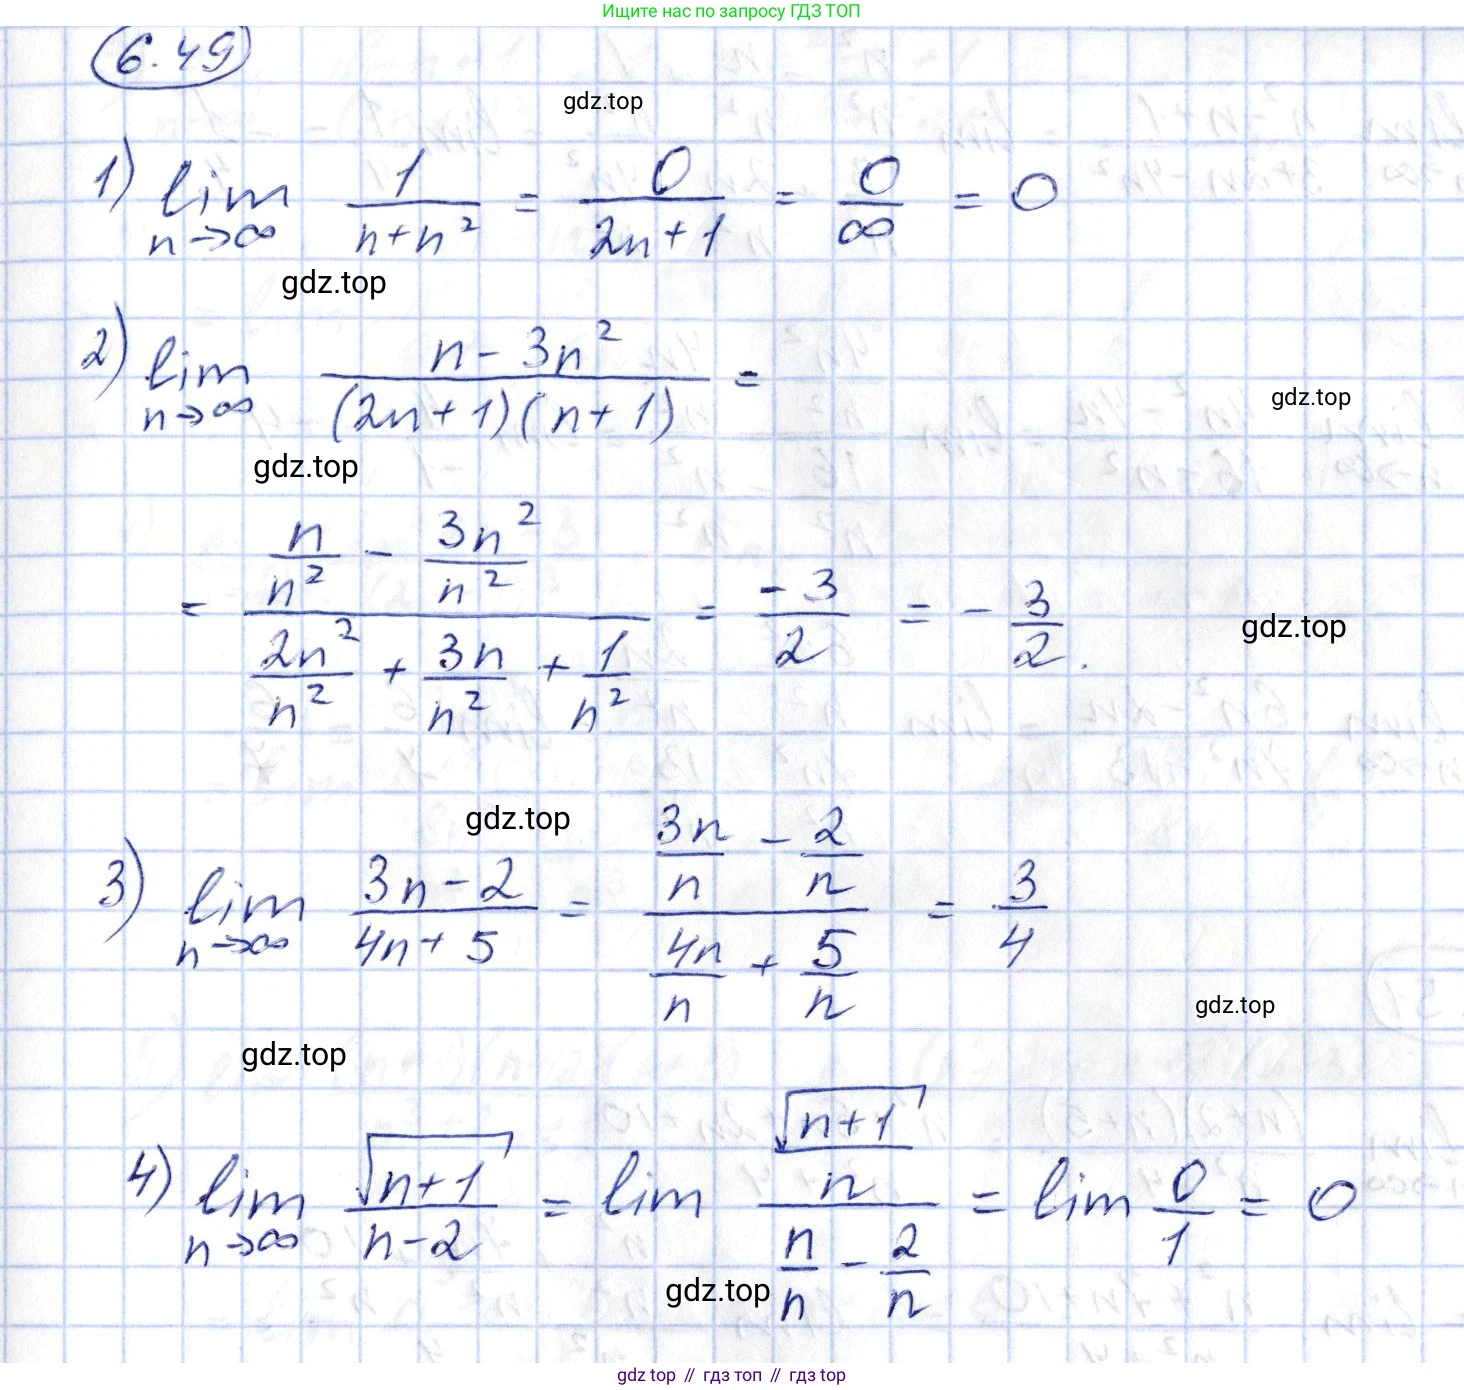 Ищите нас по запросу ГДЗ ТОП
6.49
gdz.top
1) lim n→∞ 1/(n+n²) = 0/(2n+1) = 0/∞ = 0
gdz.top
2) lim n→∞ (n-3n²)/((2n+1)(n+1)) =
gdz.top
gdz.top
= (n/n² - 3n²/n²)/(2n²/n² + 3n/n² + 1/n²) = -3/2 = -3/2.
gdz.top
gdz.top
3) lim n→∞ (3n-2)/(4n+5) = (3n/n - 2/n)/(4n/n + 5/n) = 3/4
gdz.top
gdz.top
4) lim n→∞ √(n+1)/(n-2) = lim (√(n+1)/n)/(n/n - 2/n) = lim 0/1 = 0
gdz.top
gdz top // гдз топ // гдз top